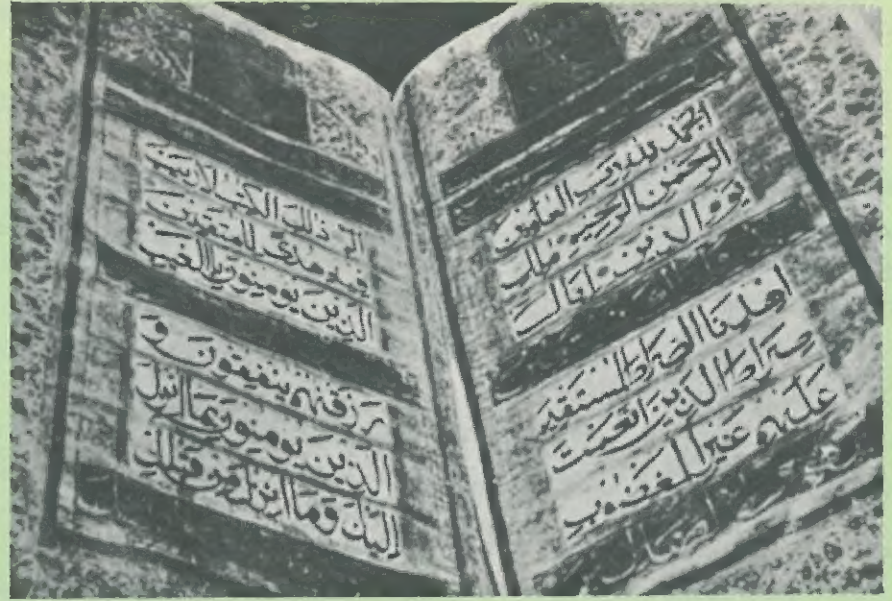 الحمد لله رب العالمين
الرحمن الرحيم مالك
يوم الدين اياك
اهدنا الصراط المستقيم
صراط الذين انعمت
عليهم غير المغضوب
الم ذلك الكتب لاريب
فيه هدى للمتقين
الذين يومنون بالغيب
رزقنهم ينفقون و
الذين يومنون بما انزل
اليك وما انزل من قبلك